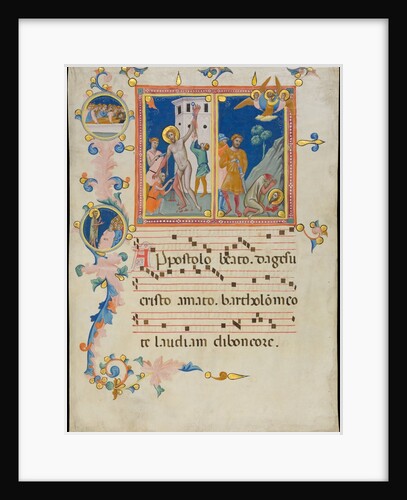 Appostolo beato. dagesu
cristo amato. bartholomeo
te laudiam di bon core.